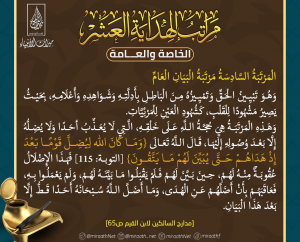 مراتب الهداية العشر
الخاصة والعامة
ميراث الأنبياء
المَرْتَبَةُ السَّادِسَةُ مَرْتَبَةُ البَيَانِ العَامِّ
وَهُوَ تَبْيِينُ الحَقِّ وَتَمْيِيزُهُ مِنَ البَاطِلِ بِأَدِلَّتِهِ وَشَوَاهِدِهِ وَأَعْلَامِهِ، بِحَيْثُ
يَصِيرُ مَشْهُودًا لِلْقَلْبِ، كَشُهُودِ العَيْنِ لِلْمَرْئِيَّاتِ.
وَهَذِهِ المَرْتَبَةُ هِيَ حُجَّةُ اللَّهِ عَلَى خَلْقِهِ، الَّتِي لَا يُعَذِّبُ أَحَدًا وَلَا يُضِلُّهُ
إِلَّا بَعْدَ وُصُولِهِ إِلَيْهَا، قَالَ اللَّهُ تَعَالَى {وَمَا كَانَ اللَّهُ لِيُضِلَّ قَوْمًا بَعْدَ
إِذْ هَدَاهُمْ حَتَّى يُبَيِّنَ لَهُمْ مَا يَتَّقُونَ} [التوبة: 115] فَهَذَا الإِضْلَالُ
عُقُوبَةٌ مِنْهُ لَهُمْ، حِينَ بَيَّنَ لَهُمْ فَلَمْ يَقْبَلُوا مَا بَيَّنَهُ لَهُمْ، وَلَمْ يَعْمَلُوا بِهِ،
فَعَاقَبَهُمْ بِأَنْ أَضَلَّهُمْ عَنِ الهُدَى، وَمَا أَضَلَّ اللَّهُ سُبْحَانَهُ أَحَدًا قَطُّ إِلَّا
بَعْدَ هَذَا البَيَانِ.
[مدارج السالكين لابن القيم ص65]